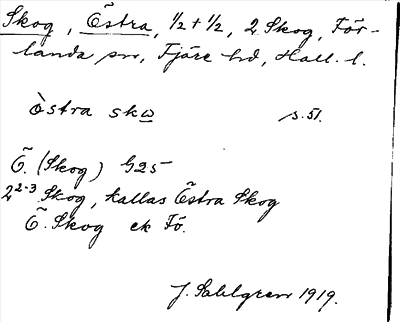 Skog, Östra, 1/2 + 1/2, 2 Skog, För-
landa sn, Fjäre hd, Hall. l.
östra sko s. 51.
Ö. (Skog) G25
2 2-3 Skog, kallas Östra Skog
Ö. Skog ek Fö.
J. Sahlgren 1919.